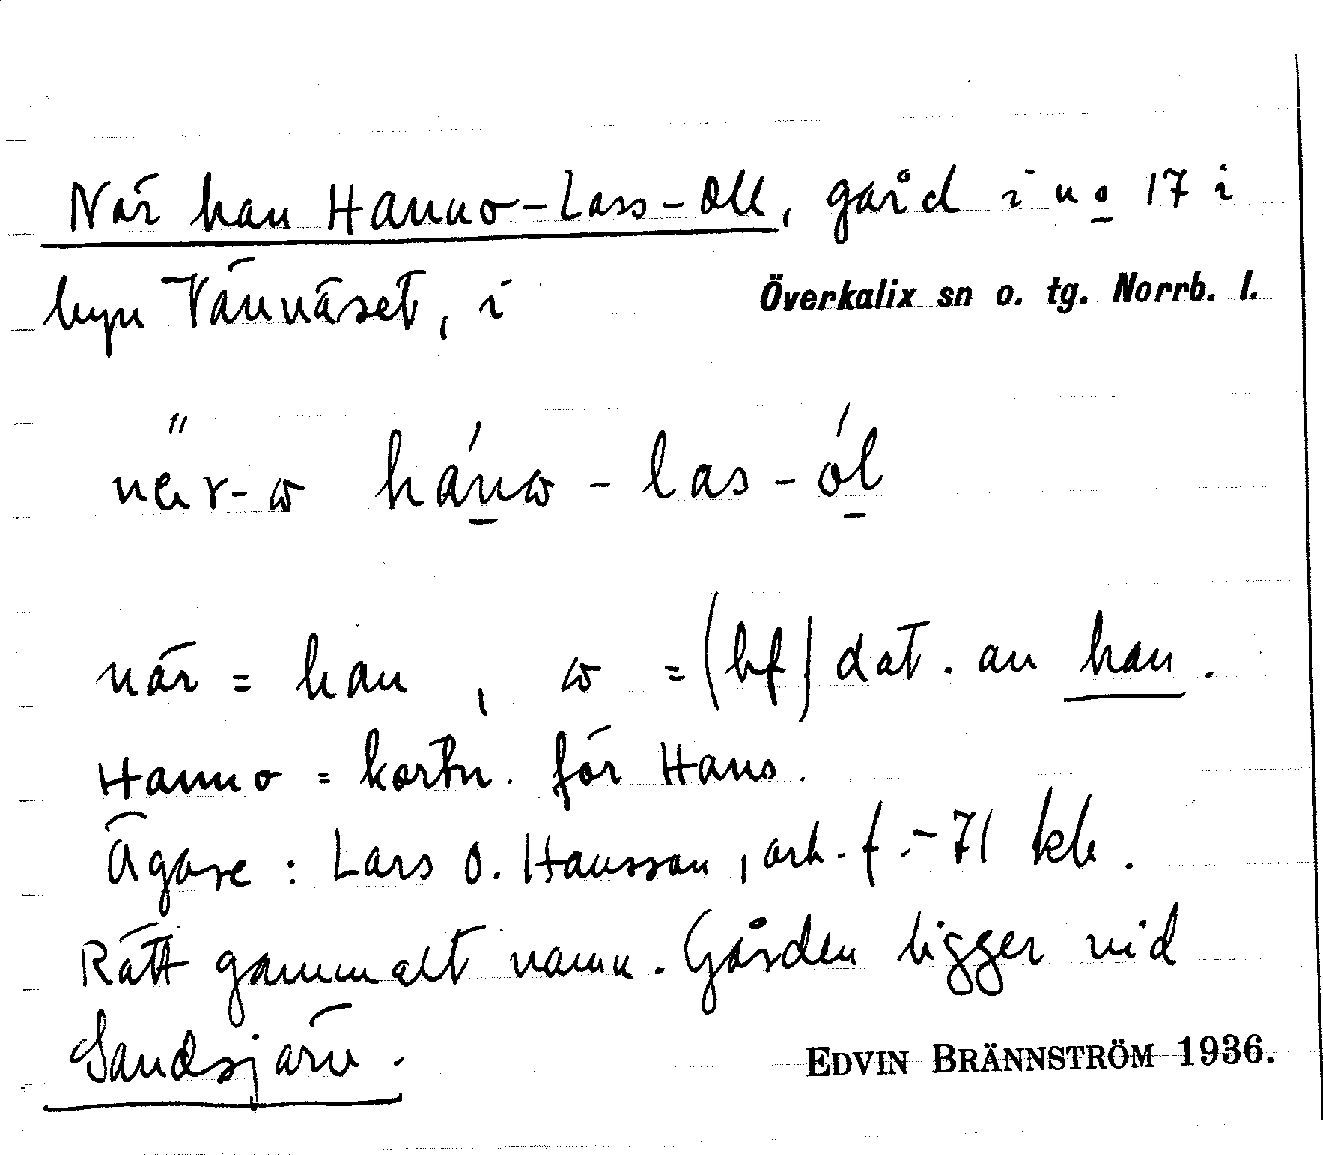 När han Hanno-Lass-Oll, gård i no 17 i
byn Vännäset, i Överkalix sn o. tg. Norrb. l.
när-ω hánω - las - ól
när = han , ω = (bf) dat. av han.
Hanno = kortn. för Hans.
Ägare : Lars O. Hansson, arb. f. -71 kb.
Rätt gammalt namn. Gården ligger vid
Sandsjärv.
EDVIN BRÄNNSTRÖM 1936.